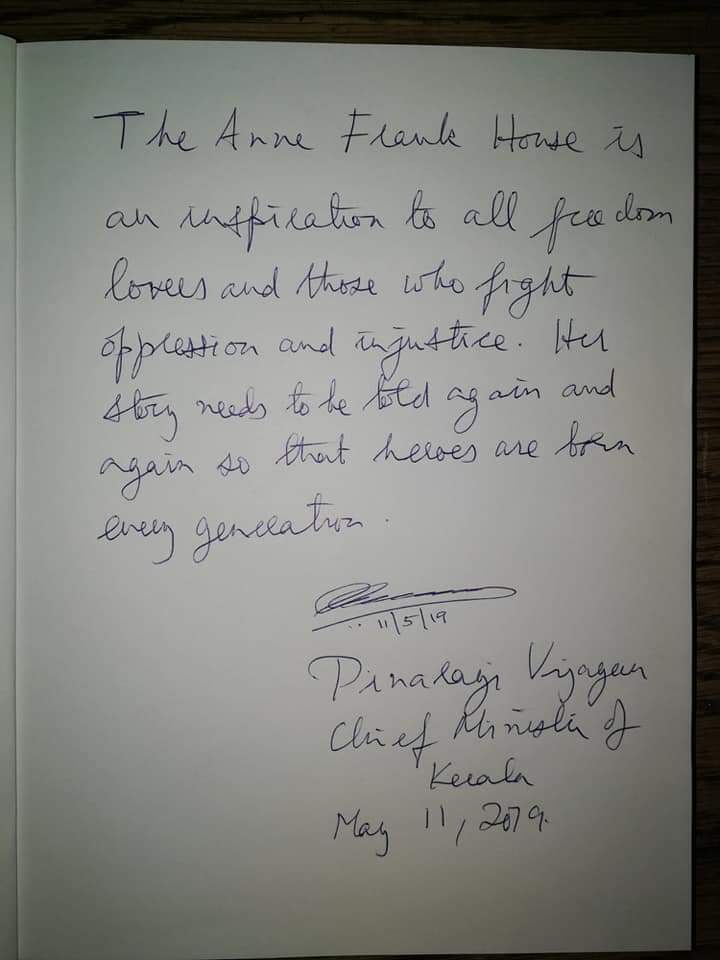 The Anne Frank House is
an inspiration to all freedom
lovers and those who fight
oppression and injustice. Her
story needs to be told again and
again so that heroes are born
every generation.
11/5/19
Pinarayi Vijayan
Chief Minister of
Kerala
May 11, 2019.